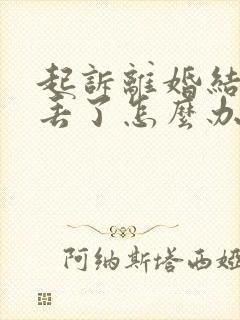 起訴離婚結
丟了怎麼办
阿纳斯塔西娅